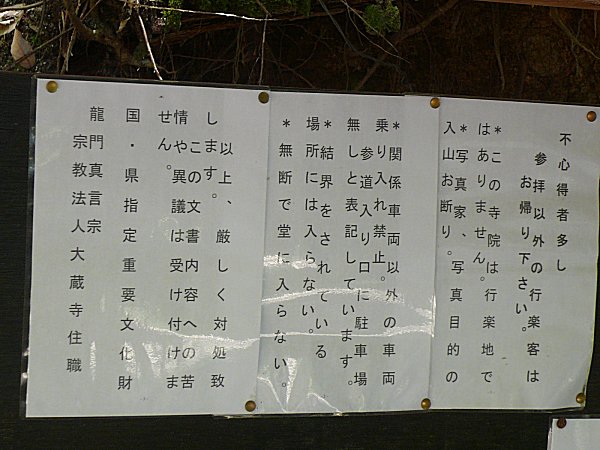 不心得者多し
参拝以外の行楽客は
お帰り下さい。
*この寺院は行楽地で
はありません。
*写真家、写真目的の
入山お断り。
*関係車両以外の車両
乗り入れ禁止。
参道入り口に駐車場
無しと表記しています。
*結界をされている
場所には入らない。
*無断で堂に入らない。
以上、厳しく対処致
します。
この文書内容への苦
情や異議は受け付けま
せん。
国・県指定重要文化財
龍門真言宗
宗教法人大蔵寺住職